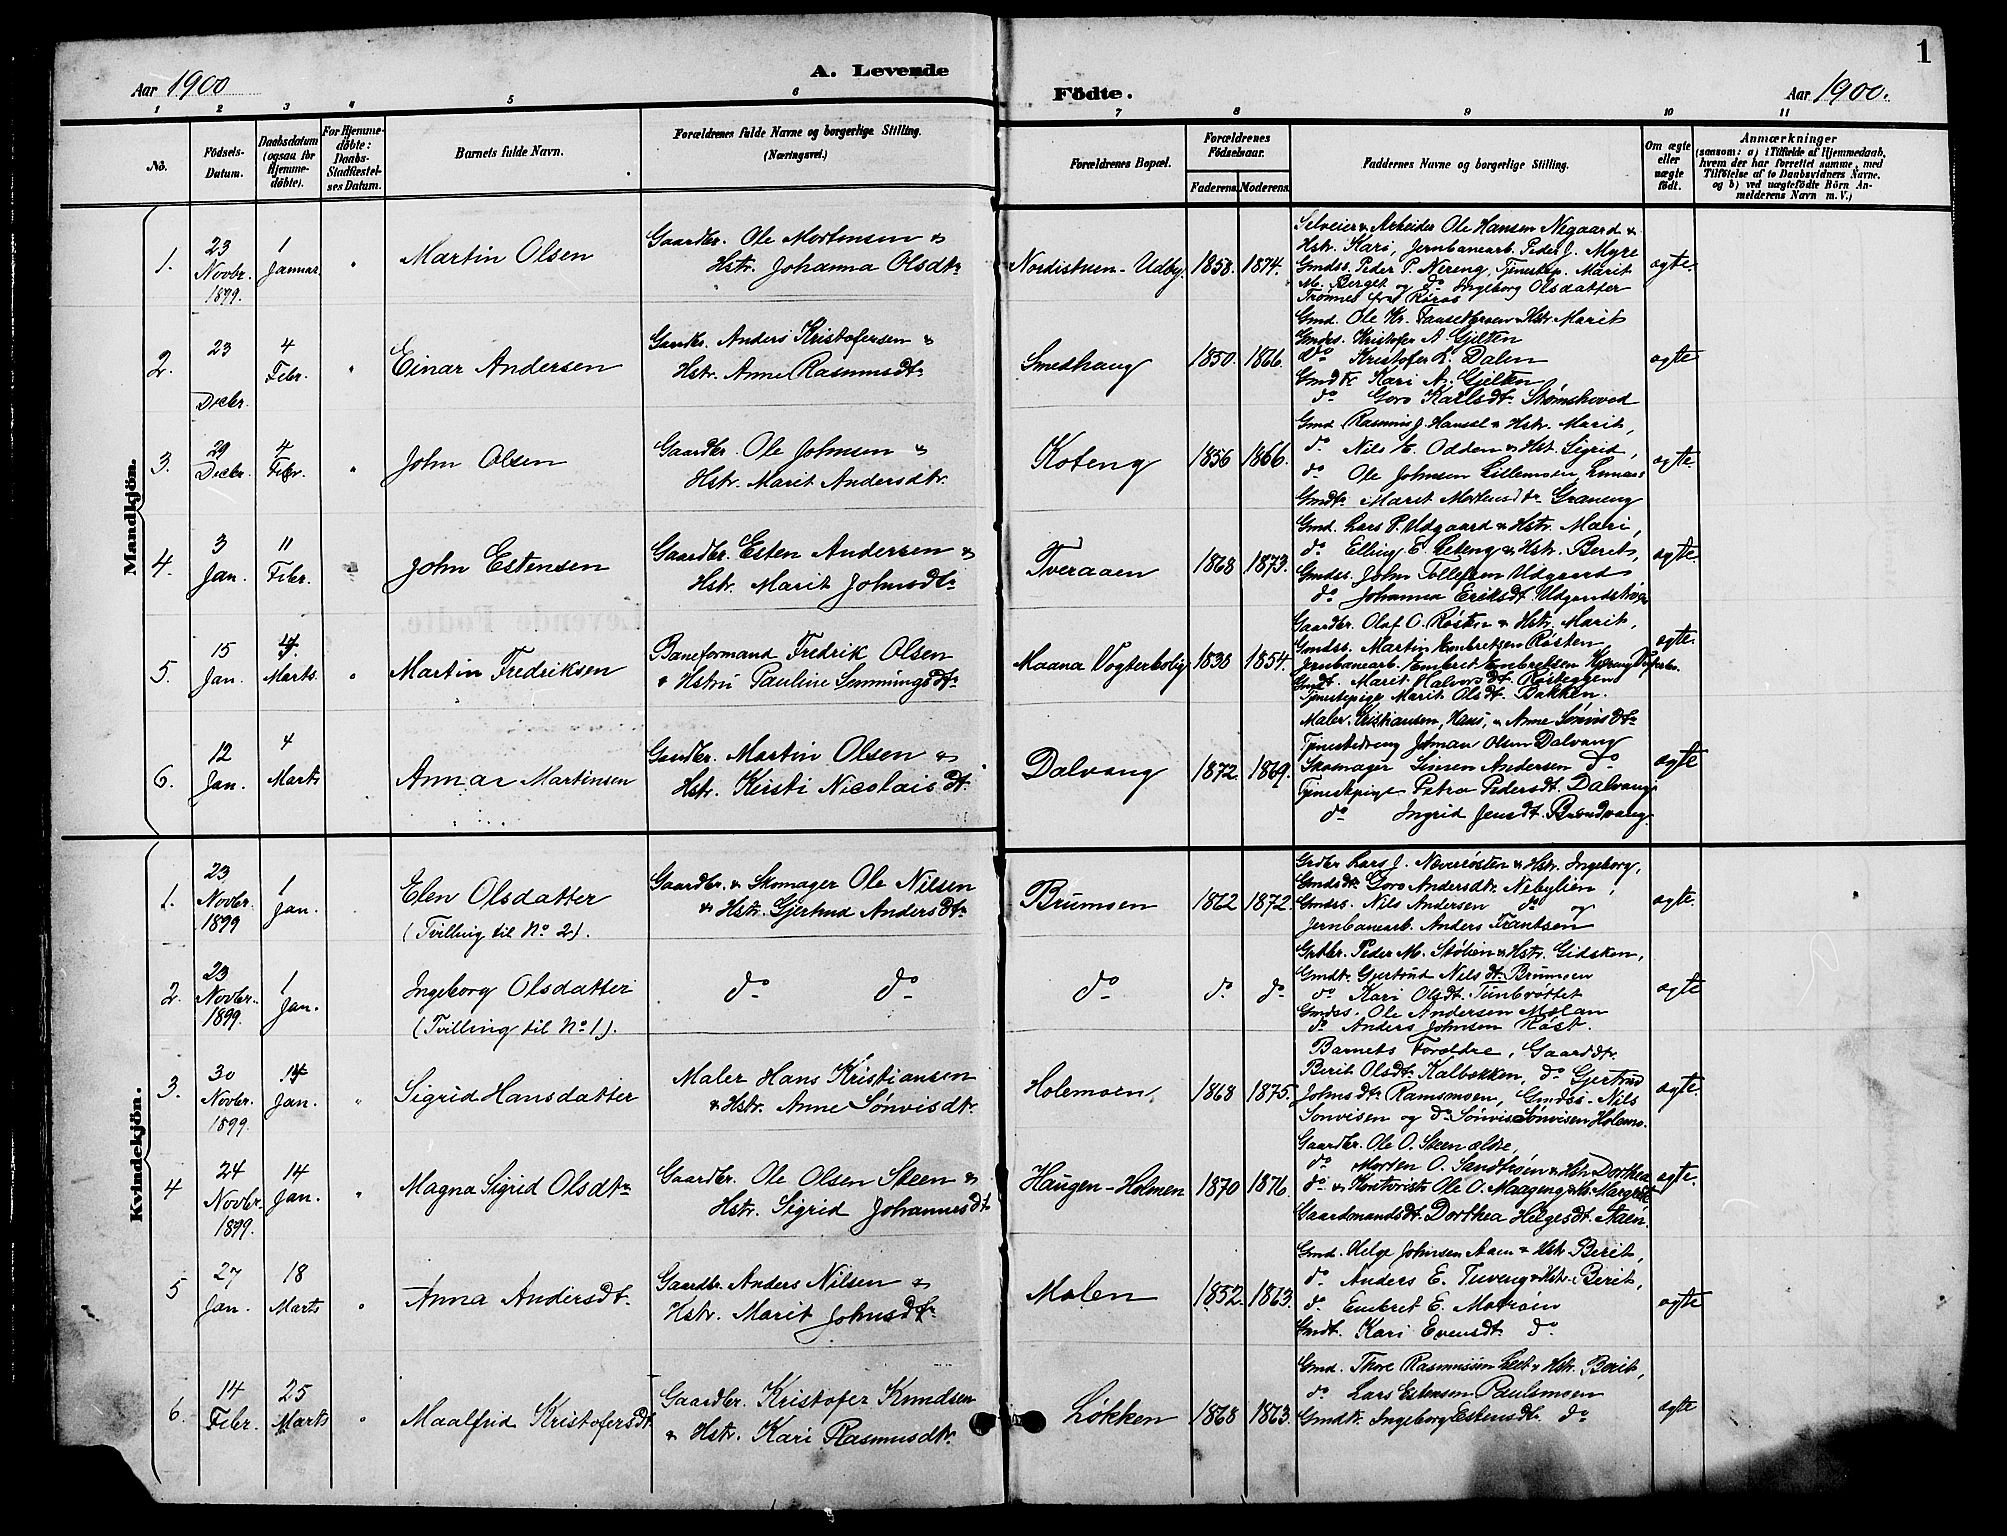 1
Aar 1900
A. Levende
Födte.
Aar 1900.
1 2 3 4 5 6 7 8 9 10 11
No.
Födsels-Datum.
Daabsdatum (ogsaa for Hjemmedöbte).
For Hjemmedöbte: Daabs-Stadfæstelses Datum.
Barnets fulde Navn.
Forældrenes fulde Navne og borgerlige Stilling.
(Næringsvei.)
Forældrenes Bopæl.
Forældrenes Födselsaar.
Faderens. Moderens.
Faddernes Navne og borgerlige Stilling.
Om ægte eller uægte födt.
Anmærkninger
(saasom: a) i Tilfælde af Hjemmedaab,
hvem der har forrettet samme, med
Tilföielse af to Daabsvidners Navne.
og b) ved uægtefödte Börn Anmelderens Navn m. V.)
Mandkjön.
1.
23 Novbr. 1899.
1 Januar.
"
Martin Olsen
Gaardbr. Ole Mortensen &
Hstr. Johanna Olsdtr
Nordistuen-Udby.
1858. 1874.
Selveier & Arbeider Ole Hansen Negaard &
Hstr. Kari, Jernbanearb. Peder J. Myre
Gmdss. Peder P. Nereng, Tjenestep. Marit
M. Berget og do Ingeborg Olsdatter
Trønnes fra Røros
ægte.
2.
23 Decbr.
4 Febr.
"
Einar Andersen
Gaardbr. Anders Kristofersen &
Hstr. Anne Rasmusdtr
Smedhaug
1850. 1866.
Gmd. Ole Kr. & Hstr Marit
Gmdss. Kristofer A. Gjelten
do Kristofer L. Dalen
Gmdtr Kari A. Gjelten
do Goro Karlsdtr. Strømshoved
ægte
3.
29 Decbr.
4 Febr.
"
John Olsen
Gaardbr. Ole Johnsen &
Hstr. Marit Andersdtr.
Koteng
1856 1866.
Gmd Rasmus J. & Hstr. Marit,
do Nils E. Odden & Hst. Sigrid,
do Ole Johnsen Lillemoen,
Gmdtr. Marit Mortensdtr. Graneng
ægte.
4.
3 Jan.
11 Febr.
John Estensen
Gaardbr. Esten Andersen &
Hstr. Marit Johnsdtr
Tveraaen
1868 1873.
Gmd. Lars P. Udgaard & Hstr. Mari,
do Elling E. & Hstr. Berit,
Gmdss. John Tollefsen Udgaard
do Johanna Eriksdt.
ægte.
5.
15 Jan.
4 Marts.
"
Martin Fredriksen
Baneformand Fredrik Olsen
& Hstru Pauline Simmingsdtr
Maana Vogterbolig
1838 1854.
Gaardbr. Olaf O. Røsten & Hstr. Marit,
Gmdss. Martin Embretsen Røsten
Jernbanearb. Embret Embretsen
Gmdt. Marit Halvorsdt. Røsteggen
Tjenestepige Marit Olsdt. Bakken.
ægte.
6.
12 Jan.
4 Marts
Annar Martinsen
Gaardbr. Martin Olsen &
Hstr. Kirsti Nicolaisdt.
Dalvang
1872 1869.
Maler Kristiansen, Hans, & Anne Sønvisdtr
Tjenestedreng Johan Olsen Dalvang
Skomager Simen Andersen do
Tjenestepige Petra Pedersdt. Dalvang
do Ingrid Jensdt. Brandvang.
ægte
Kvindekjön.
1.
23 Novbr. 1899
1 Jan.
Elen Olsdatter
(Tvilling til No 2).
Gaardbr. & Skomager Ole Nilsen
& Hstr. Gjertrud Andersdtr
Brumoen
1862 1872.
Grdbr Lars J. Neverrøsten & Hstr. Ingeborg,
Gmdsdt. Goro Andersdtr. Nebylien,
Gmdss. Nils Andersen do og
Jernbanearb. Anders Frantsen
ægte.
2.
23 Novbr. 1899.
1 Jan.
Ingeborg Olsdatter
(Tvilling til No 1).
do do
do
do do
Grdbr. Peder M. Stølien & Hstr. Gidsken,
Gmdtr. Gjertrud Nilsdt. Brumoen
do Kari Olsdt. Tunbrøttet
Gmdss. Ole Andersen Moløn
do Anders Johnsen Røst.
ægte
3.
30 Novbr. 1899.
14 Jan.
"
Sigrid Hansdatter
Maler Hans Kristiansen
& Hstr. Anne Sønvisdt.
Holemoen
1868 1875.
Barnets Forældre, Gaarddtr.
Berit Olsdt. Kalbækken, do Gjertrud
Johnsdt. Ramsmoen, Gmdss. Nils
Sønvisen og do Sønvis Sønvisen Holemo.
ægte.
4
24 Novbr. 1899
14 Jan.
"
Magna Sigrid Olsdtr
Gaardbr. Ole Olsen Steen &
Hstr. Sigrid Johannesdt
Haugen-Holmen
1870 1876.
Gaardbr. Ole O. Steen ældre,
do Morten O. Sandtrøen & Hstr Dorthea
do & Kontorist Ole O. Maageng
Gaardmandsdt. Dorthea Helgesdt. Aaen.
ægte.
5
27 Jan.
18 Marts
"
Anna Andersdt.
Gaardbr. Anders Nilsen &
Hstr. Marit Johnsdtr
Moløn
1852. 1863.
Gmd. Helge Johnsen Aaen & Hstr Berit,
do Anders E. Tuveng & Hstr. Berit,
do Embret E. Motrøen
Gmdt. Kari Evensdt. do
ægte
6.
14 Febr.
25 Marts
"
Maalfrid Kristofersdt.
Gaardbr. Kristofer Knudsen
& Hstr. Kari Rasmusdtr.
Løkken
1868 1863.
Gmd. Thore Rasmussen & Hstr. Berit,
do Lars Estensen Paulsmoen
Gmdtr. Ingeborg Estensdtr. do
ægte